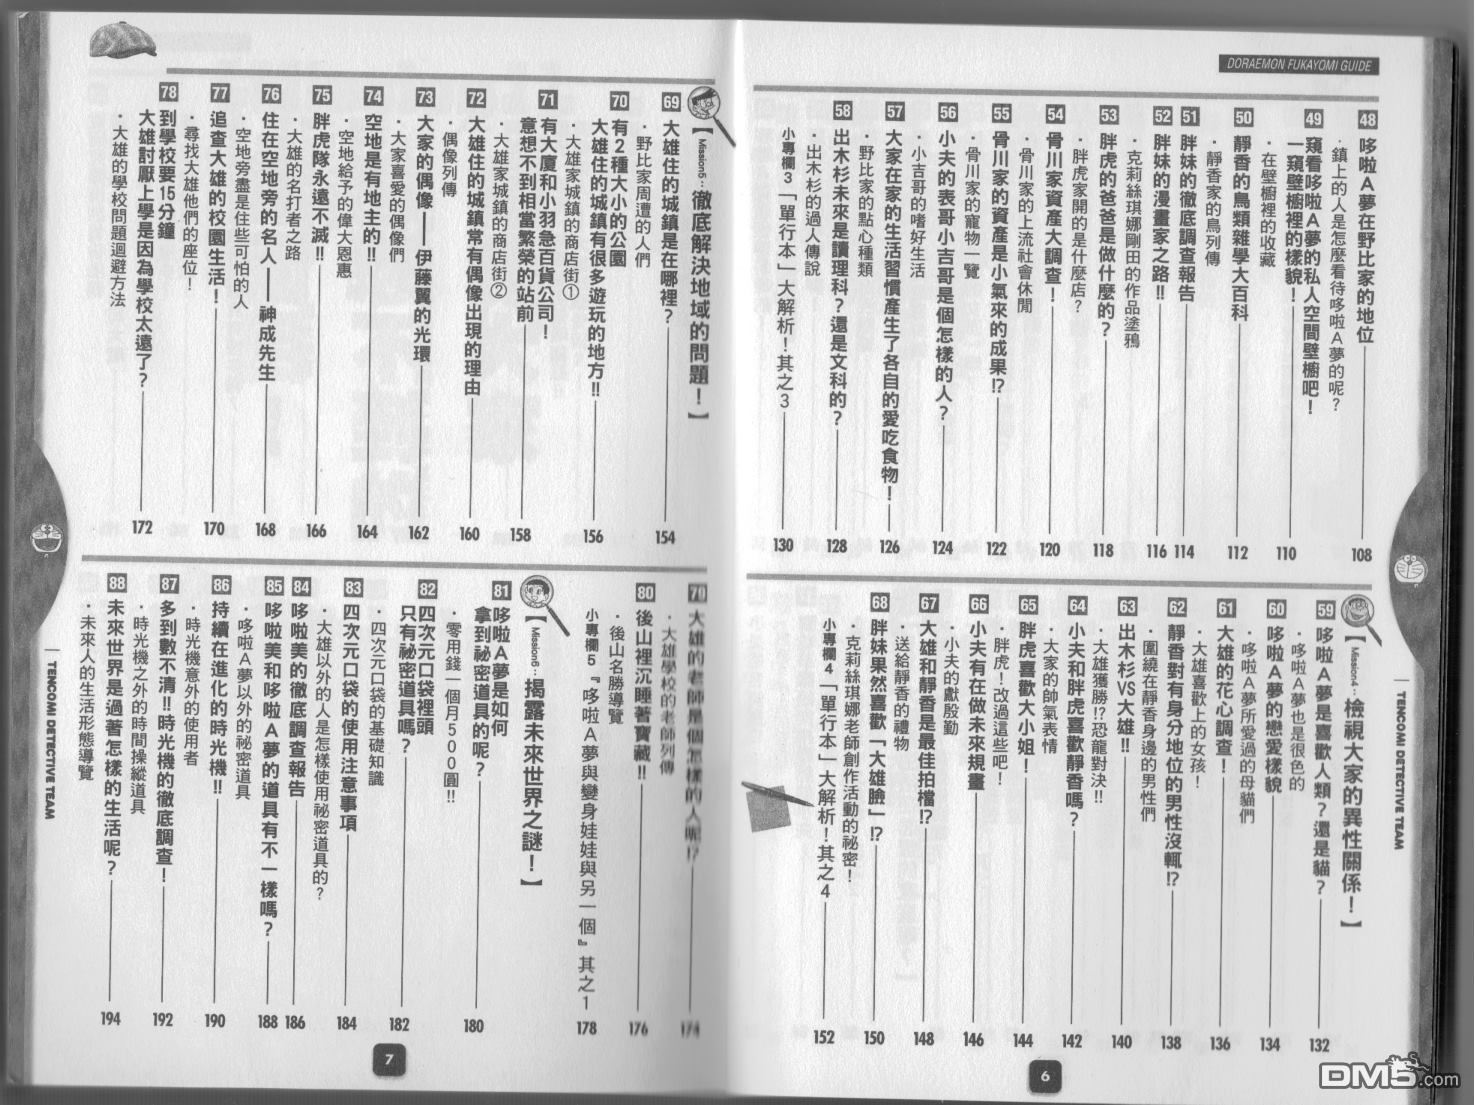 DORAEMON FUKAYOMI GUIDE
48 哆啦A夢在野比家的地位 108
・鎮上的人是怎麼看待哆啦A夢的呢?
49 窺看哆啦A夢的私人空間壁櫥吧!
一窺壁櫥裡的樣貌! 110
・在壁櫥裡的收藏
50 靜香的鳥類雜學大百科 112
・靜香家的鳥列傳
51 胖妹的徹底調查報告 114
52 胖妹的漫畫家之路!! 116
・克莉絲琪娜剛田的作品塗鴉
53 胖虎的爸爸是做什麼的? 118
・胖虎家開的是什麼店?
54 骨川家資產大調查! 120
・骨川家的上流社會休閒
55 骨川家的資產是小氣來的成果!? 122
・骨川家的寵物一覽
56 小夫的表哥小吉哥是個怎樣的人? 124
・小吉哥的嗜好生活
57 大家在家的生活習慣產生了各自的愛吃食物! 126
・野比家的點心種類
58 出木杉未來是讀理科?還是文科的? 128
・出木杉的過人傳說
小專欄3「單行本」大解析!其之3 130
【Mission4‥檢視大家的異性關係!】
59 哆啦A夢是喜歡人類?還是貓? 132
・哆啦A夢也是很色的
60 哆啦A夢的戀愛樣貌 134
・哆啦A夢所愛過的母貓們
61 大雄的花心調查! 136
・大雄喜歡上的女孩!
62 靜香對有身分地位的男性沒輒!? 138
・圍繞在靜香身邊的男性們
63 出木杉VS大雄!! 140
・大雄獲勝!?恐龍對決!!
64 小夫和胖虎喜歡靜香嗎? 142
・大家的帥氣表情
65 胖虎喜歡大小姐! 144
・胖虎!改過這些吧!
66 小夫有在做未來規畫 146
・小夫的獻殷勤
67 大雄和靜香是最佳拍檔!? 148
・送給靜香的禮物
68 胖妹果然喜歡「大雄臉」!? 150
・克莉絲琪娜老師創作活動的祕密!
小專欄4「單行本」大解析!其之4 152
TENCOMI DETECTIVE TEAM
6
【Mission5‥徹底解決地域的問題!】
69 大雄住的城鎮是在哪裡? 154
・野比家周遭的人們
70 有2種大小的公園
大雄住的城鎮有很多遊玩的地方!! 156
・大雄家城鎮的商店街①
71 有大廈和小羽急百貨公司!
意想不到相當繁榮的站前 158
・大雄家城鎮的商店街②
72 大雄住的城鎮常有偶像出現的理由 160
・偶像列傳
73 大家的偶像——伊藤翼的光環 162
・大家喜愛的偶像們
74 空地是有地主的!! 164
・空地給予的偉大恩惠
75 胖虎隊永遠不滅!! 166
・大雄的名打者之路
76 住在空地旁的名人——神成先生 168
・空地旁盡是住些可怕的人
77 追查大雄的校園生活! 170
・尋找大雄他們的座位!
78 到學校要15分鐘
大雄討厭上學是因為學校太遠了? 172
・大雄的學校問題迴避方法
79 大雄的老師是個怎樣的人呢!? 174
・大雄學校的老師列傳
80 後山裡沉睡著寶藏!! 176
・後山名勝導覽
小專欄5『哆啦A夢與變身娃娃與另一個』其之1 178
【Mission6‥揭露未來世界之謎!】
81 哆啦A夢是如何
拿到祕密道具的呢? 180
・零用錢一個月500圓!!
82 四次元口袋裡頭
只有祕密道具嗎? 182
・四次元口袋的基礎知識
83 四次元口袋的使用注意事項 184
・大雄以外的人是怎樣使用祕密道具的?
84 哆啦美的徹底調查報告 186
85 哆啦美和哆啦A夢的道具有不一樣嗎? 188
・哆啦A夢以外的祕密道具
86 持續在進化的時光機!! 190
・時光機意外的使用者
87 多到數不清!!時光機的徹底調查! 192
・時光機之外的時間操縱道具
88 未來世界是過著怎樣的生活呢? 194
・未來人的生活形態導覽
TENCOMI DETECTIVE TEAM
7
DM5.com